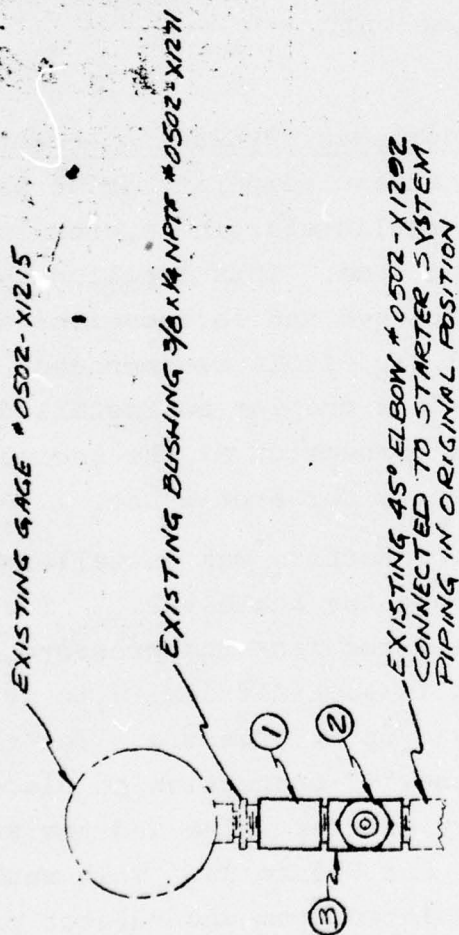 EXISTING GAGE #0502-X1215
EXISTING BUSHING 3/8 X 1/4 NPTF #0502-X1271
EXISTING 45° ELBOW #0502-X1292
CONNECTED TO STARTER SYSTEM
PIPING IN ORIGINAL POSITION
1
2
3